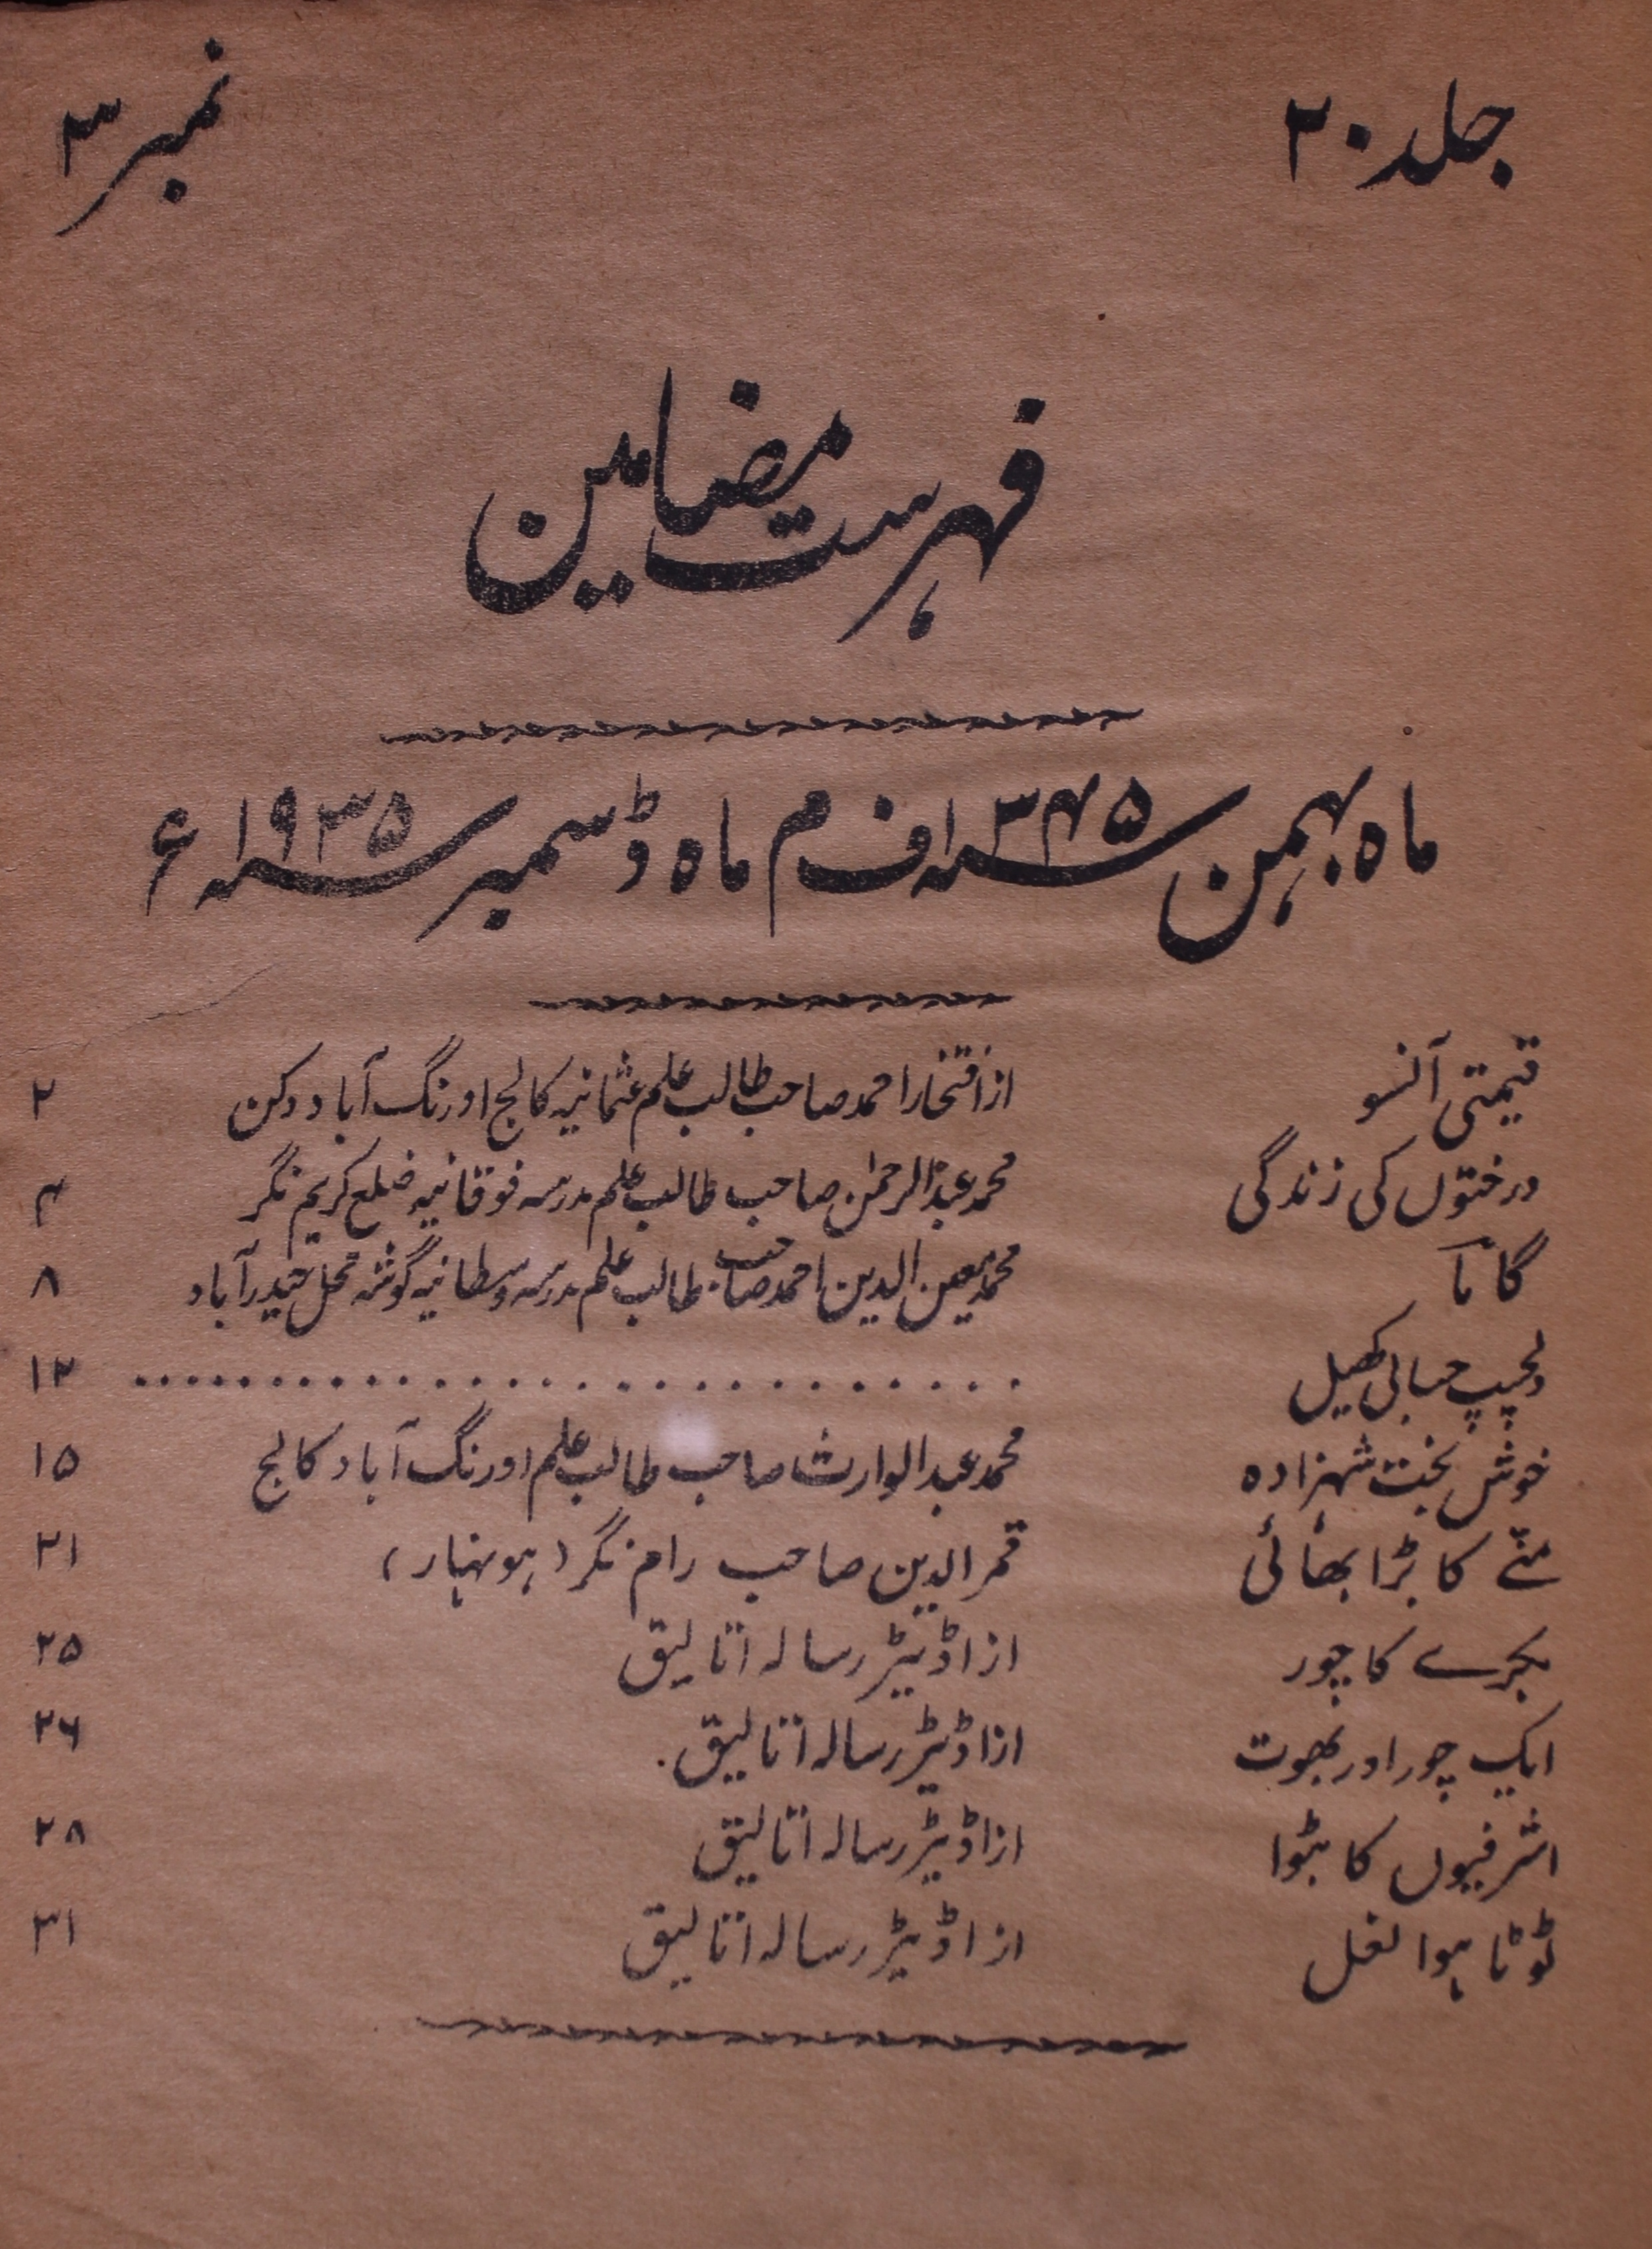 جلد ۲۰
نمبر ۳
فہرست مضامین
ماہ بہمن ۱۳۴۵ف م ماہ ڈسمبر ۱۹۳۵ء
قیمتی آنسو از افتخار احمد صاحب طالب علم عثمانیہ کالج اورنگ آباد دکن ۲
درختوں کی زندگی محمد عبدالرحمٰن صاحب طالب علم مدرسہ فوقانیہ ضلع کریم نگر ۴
گاما محمد معین الدین احمد صاحب طالب علم مدرسہ وسطانیہ گوشہ محل حیدرآباد ۸
دلچسپ حسابی کھیل .............................. ۱۲
خوش بخت شہزادہ محمد عبدالوارث صاحب طالب علم اورنگ آباد کالج ۱۵
منّے کا بڑا بھائی قمر الدین صاحب رام نگر (ہونہار) ۲۱
بکرے کا چور از اڈیٹر رسالہ اتالیق ۲۵
ایک چور اور بھوت از اڈیٹر رسالہ اتالیق. ۲۶
اشرفیوں کا بٹوا از اڈیٹر رسالہ اتالیق ۲۸
ٹوٹا ہوا نعل از اڈیٹر رسالہ اتالیق ۳۱